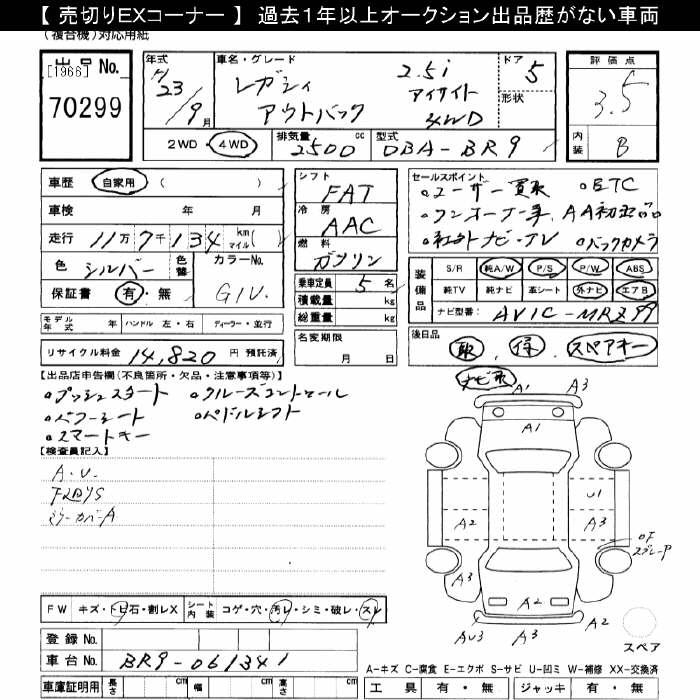 【 売切りEXコーナー 】 過去１年以上オークション出品歴がない車両
(複合機)対応用紙
出品No.
[1966]
70299
年式
H23/9月
車名・グレード
レガシィ 2.5i
アウトバック アイサイト
4WD
ドア 5
形状
評価点
3.5
内装 B
2WD・4WD
排気量 2500 cc
型式 DBA-BR9
車歴 自家用 ( )
車検 年 月
走行 11万7千134 km マイル( )
色 シルバー 色替
カラーNo. G1U
保証書 有・無
シフト FAT
冷房 AAC
燃料 ガソリン
乗車定員 5 名
積載量 kg
総重量 kg
セールスポイント
・ユーザー買取 ・ETC
・ワンオーナー車、AA初出品
・社外ナビ・TV ・バックカメラ
装備品
S/R 純A/W P/S P/W ABS
純TV 純ナビ 革シート 外ナビ エアB
ナビ型番： AVIC-MRZ99
モデル年式 年 ハンドル 左・右 ディーラー・並行
名変期限
月 日
後日品
取、保、スペアキー
ナビ取
リサイクル料金 14,820 円 預託済
【出品店申告欄(不良箇所・欠品・注意事項等)】
・プッシュスタート ・クルーズコントロール
・パワーシート ・パドルシフト
・スマートキー
【検査員記入】
A・U
ミラーカバーA
A1 A3
A1
U1
A2 A3
A3
A2 A2
AU3 A3
スペア
FW キズ・トビ石・割レX シート内装 コゲ・穴・汚レ・シミ・破レ・スレ
登録 No.
車台 No. BR9-061341
A-キズ C-腐食 E-エクボ S-サビ U-凹ミ W-補修 XX-交換済
車庫証明用 長さ cm 幅 cm 高さ cm
工具 有・無 ジャッキ 有・無